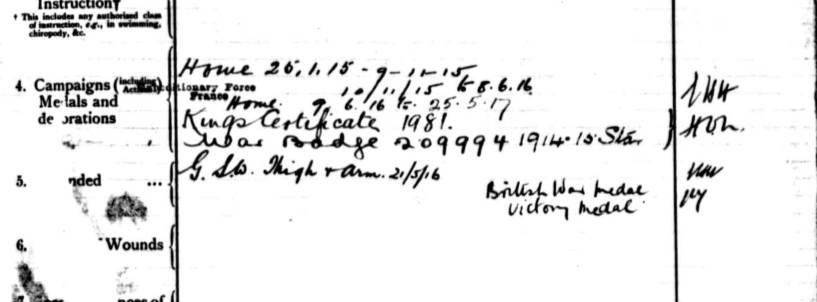 Instruction†
† This includes any authorised class
of instruction, e.g., in swimming,
chiropody, &c.
Home 25.1.15 - 9-11-15
4. Campaigns (including Actions) Expeditionary Force France 10/11/15 to 8.6.16
Medals and Home 9.6.16 to 25.5.17
decorations Kings Certificate 1981.
War Badge 209994 1914-15 Star
5. Wounded ... G.S.W. Thigh & Arm. 21/5/16
British War Medal
Victory Medal
6. Wounds